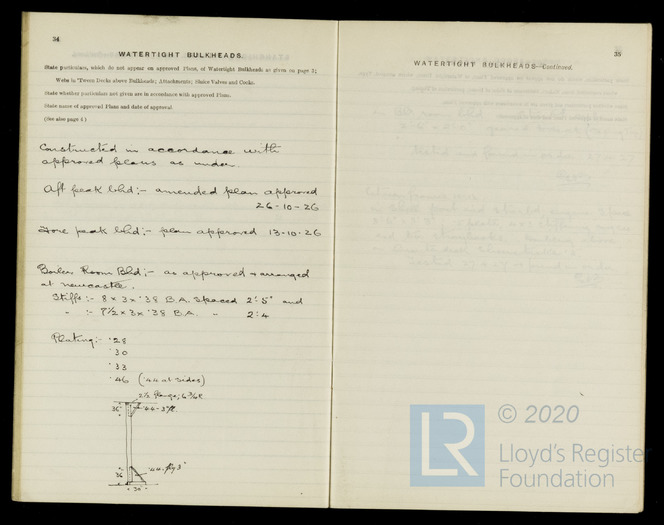 34
WATERTIGHT BULKHEADS.
State particulars, which do not appear on approved Plans, of Watertight Bulkheads as given on page 3;
Webs in 'Tween Decks above Bulkheads; Attachments; Sluice Valves and Cocks.
State whether particulars not given are in accordance with approved Plans.
State name of approved Plans and date of approval.
(See also page 4)
Constructed in accordance with
approved plans as under.
Aft peak bhd :- amended plan approved
26-10-26
Fore peak bhd :- plan approved 13.10.26
Boiler Room Bhd :- as approved & arranged
at newcastle.
Stiffs :- 8 x 3 x .38 B.A. spaced 2'.5" and
" :- 7½ x 3 x .38 B.A. " 2'.4
Plating :- .28
.30
.33
.46 (.44 at sides)
2½ flange; 6 ¾ R
36"
.44 - 3"
36"
.44. 3"
30"
35
WATERTIGHT BULKHEADS—Continued.
© 2020
LR
Lloyd's Register
Foundation